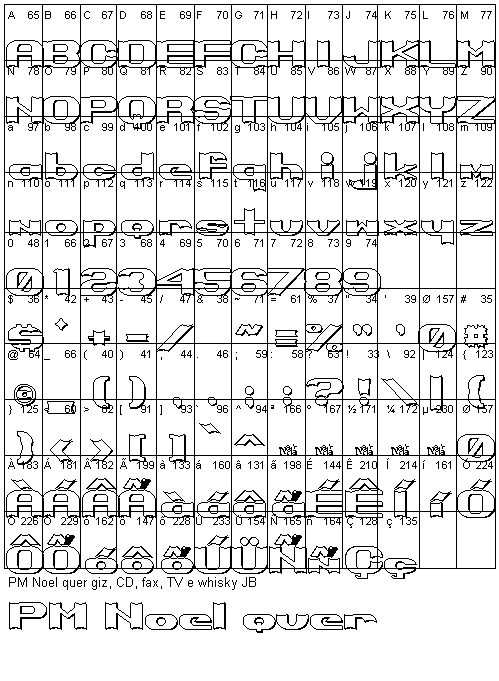 A 65 B 66 C 67 D 68 E 69 F 70 G 71 H 72 I 73 J 74 K 75 L 76 M 77
A B C D E F G H I J K L M
N 78 O 79 P 80 Q 81 R 82 S 83 T 84 U 85 V 86 W 87 X 88 Y 89 Z 90
N O P Q R S T U V W X Y Z
a 97 b 98 c 99 d 400 e 101 f 102 g 103 h 104 i 105 j 106 k 107 l 108 m 109
a b c d e f g h i j k l m
n 110 o 111 p 112 q 113 r 114 s 115 t 116 u 117 v 118 w 119 x 120 y 121 z 122
n o p q r s t u v w x y z
0 48 1 66 2 67 3 68 4 69 5 70 6 71 7 72 8 73 9 74
0 1 2 3 4 5 6 7 8 9
$ 36 * 42 + 43 - 45 / 47 & 38 ~ 71 = 61 % 37 " 34 ' 39 Ø 157 # 35
$ * + - / ~ = % " ' Ø #
@ 64 _ 66 ( 40 ) 41 , 44 . 46 ; 59 : 58 ? 63 ! 33 \ 92 | 124 { 123
@ _ ( ) , . ; : ? ! \ | {
} 125 < 60 > 62 [ 91 ] 93 ` 96 ^ 94 ª 166 ° 167 ½ 171 ¼ 172 µ 230 Ø 157
} < > [ ] ` ^ Ø
À 183 Á 181 Â 182 Ã 199 à 133 á 160 â 131 ã 198 É 144 Ê 210 Í 214 í 161 Ó 224
À Á Â Ã à á â ã É Ê Í í Ó
Ô 226 Õ 229 ô 162 ö 147 õ 228 Ú 233 Ü 154 Ñ 165 ñ 164 Ç 128 ç 135
Ô Õ ó ô õ Ú Ü Ñ ñ Ç ç
PM Noel quer giz, CD, fax, TV e whisky JB
PM Noel quer